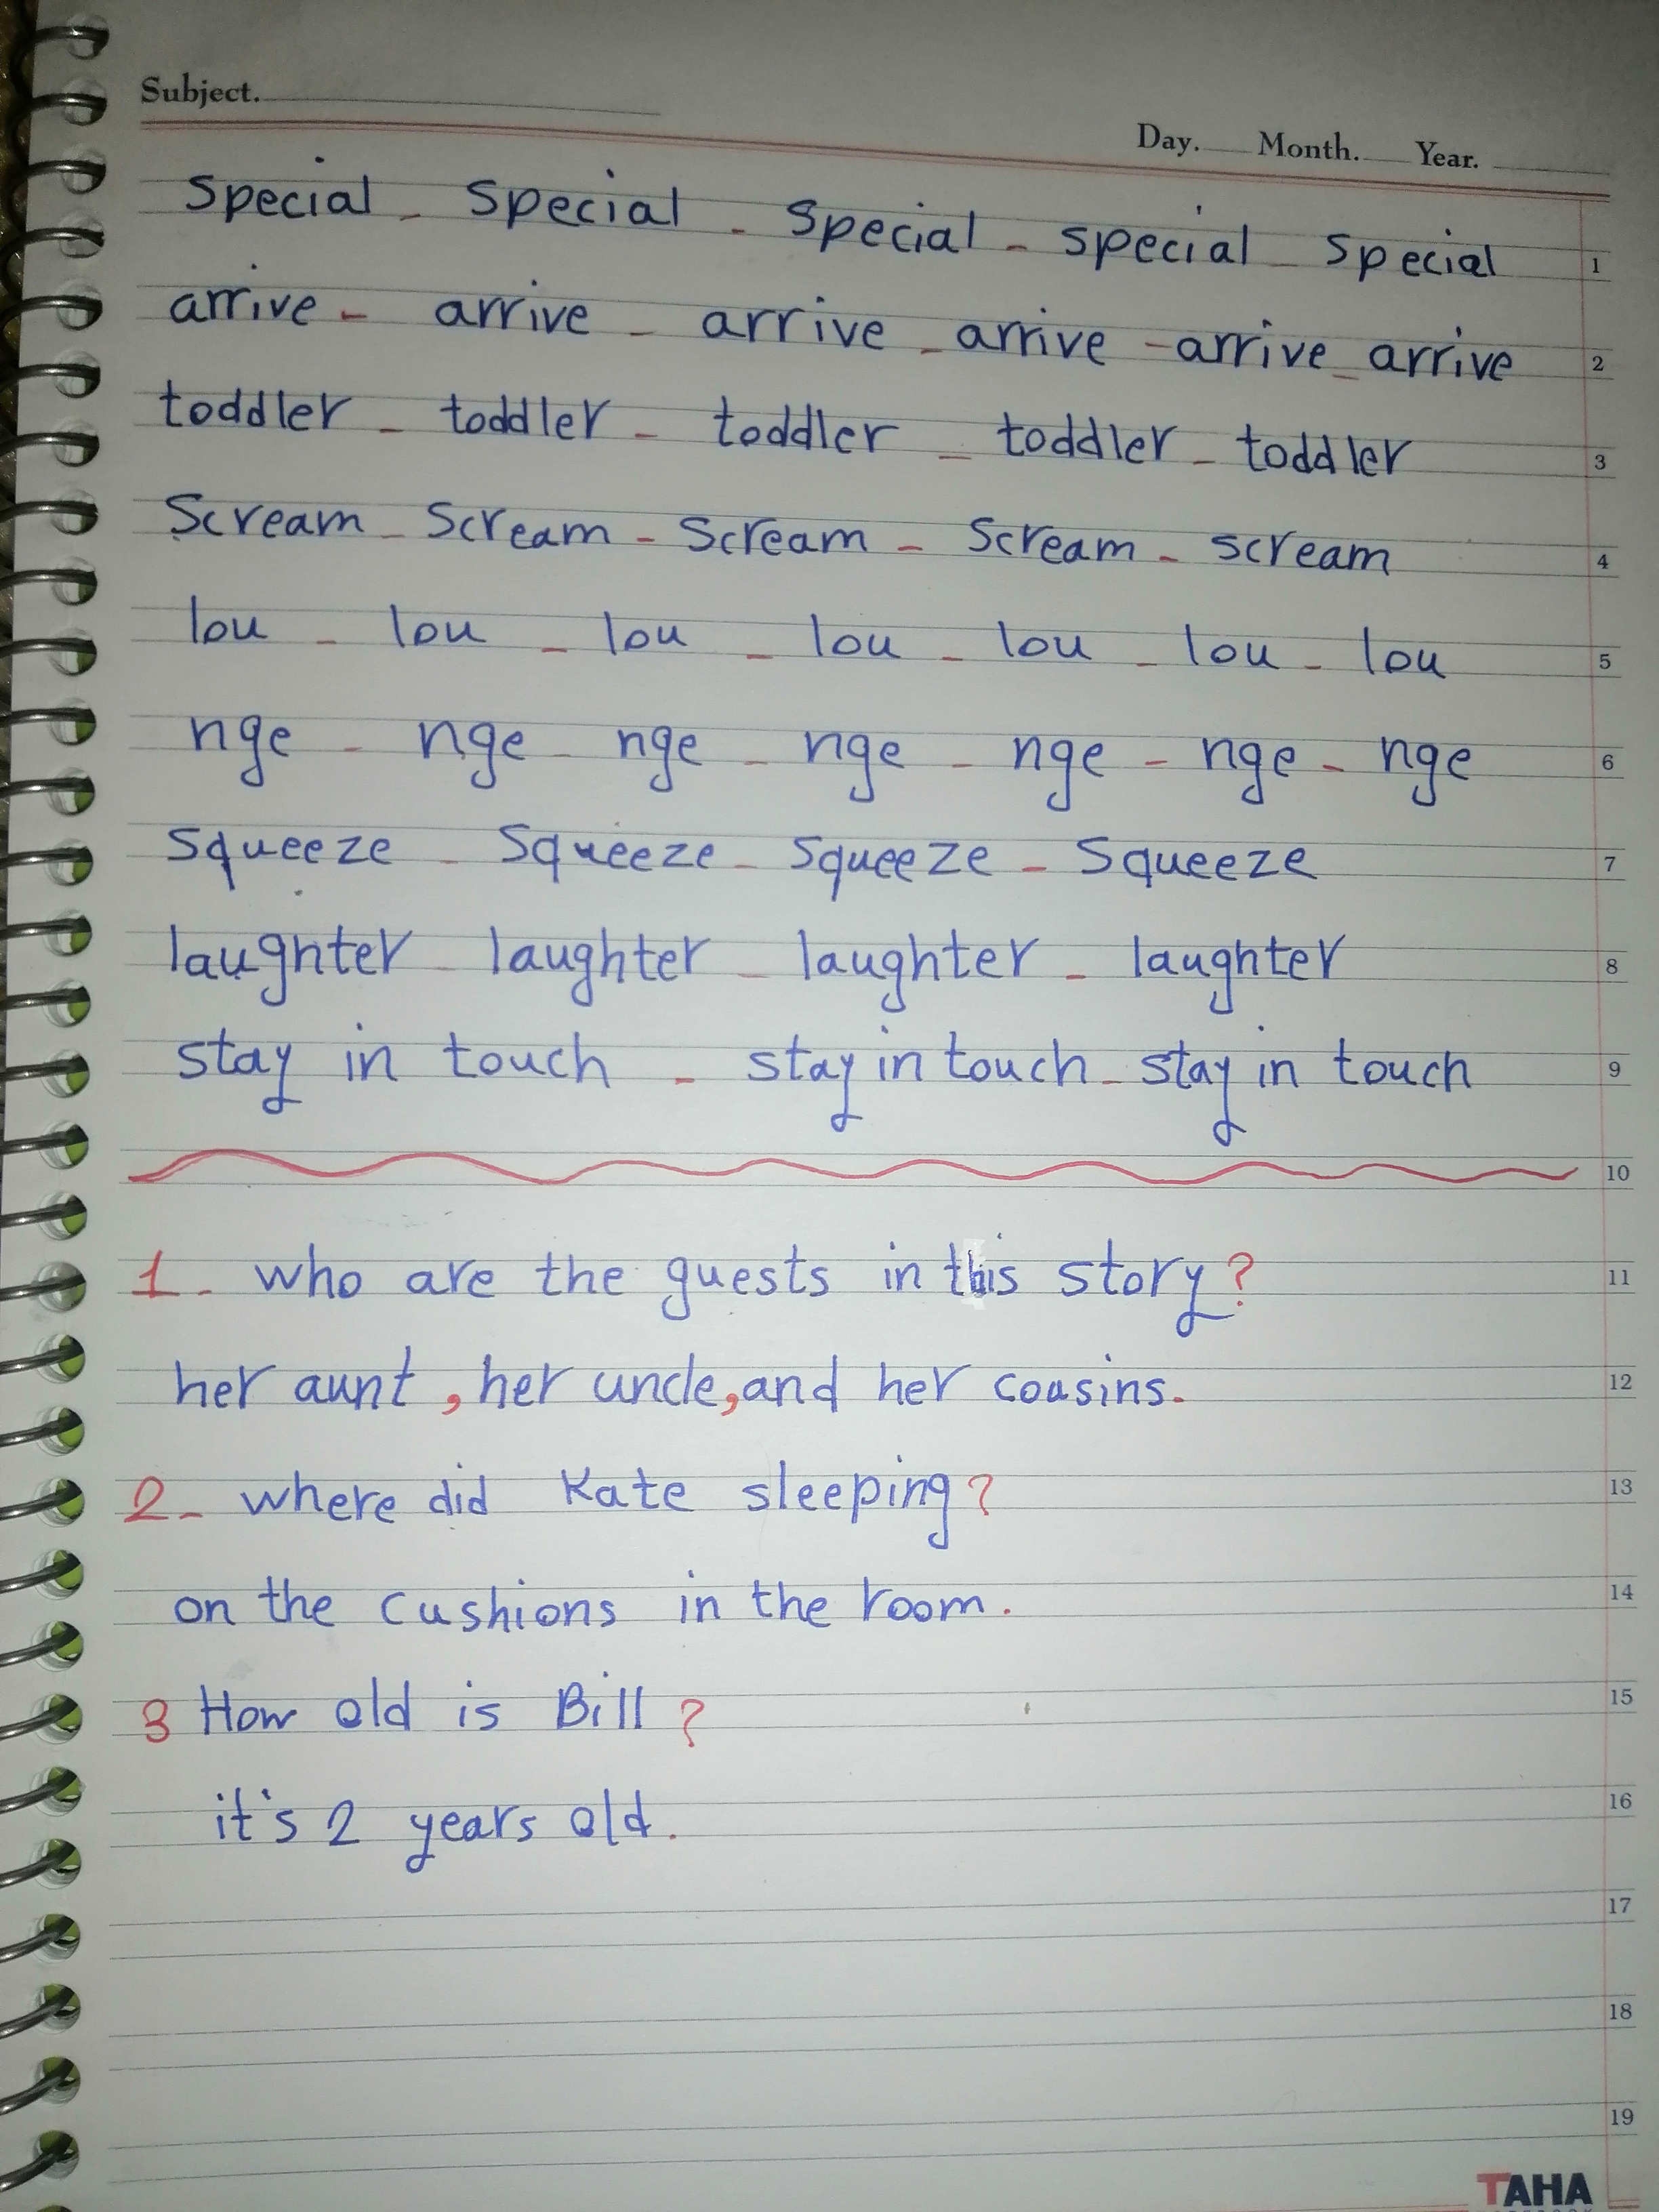 Subject.
Day. Month. Year.
special - special - special - special - special 1
arrive - arrive - arrive - arrive - arrive - arrive 2
toddler - toddler - toddler - toddler - toddler 3
Scream - Scream - Scream - Scream - scream 4
lou - lou - lou - lou - lou - lou - lou 5
nge - nge - nge - nge - nge - nge - nge 6
squeeze - squeeze - squeeze - squeeze 7
laughter - laughter - laughter - laughter 8
stay in touch - stay in touch - stay in touch 9
10
1- who are the guests in this story? 11
her aunt, her uncle, and her cousins. 12
2- where did Kate sleeping? 13
on the cushions in the room. 14
3 How old is Bill? 15
it's 2 years old. 16
17
18
19
TAHA